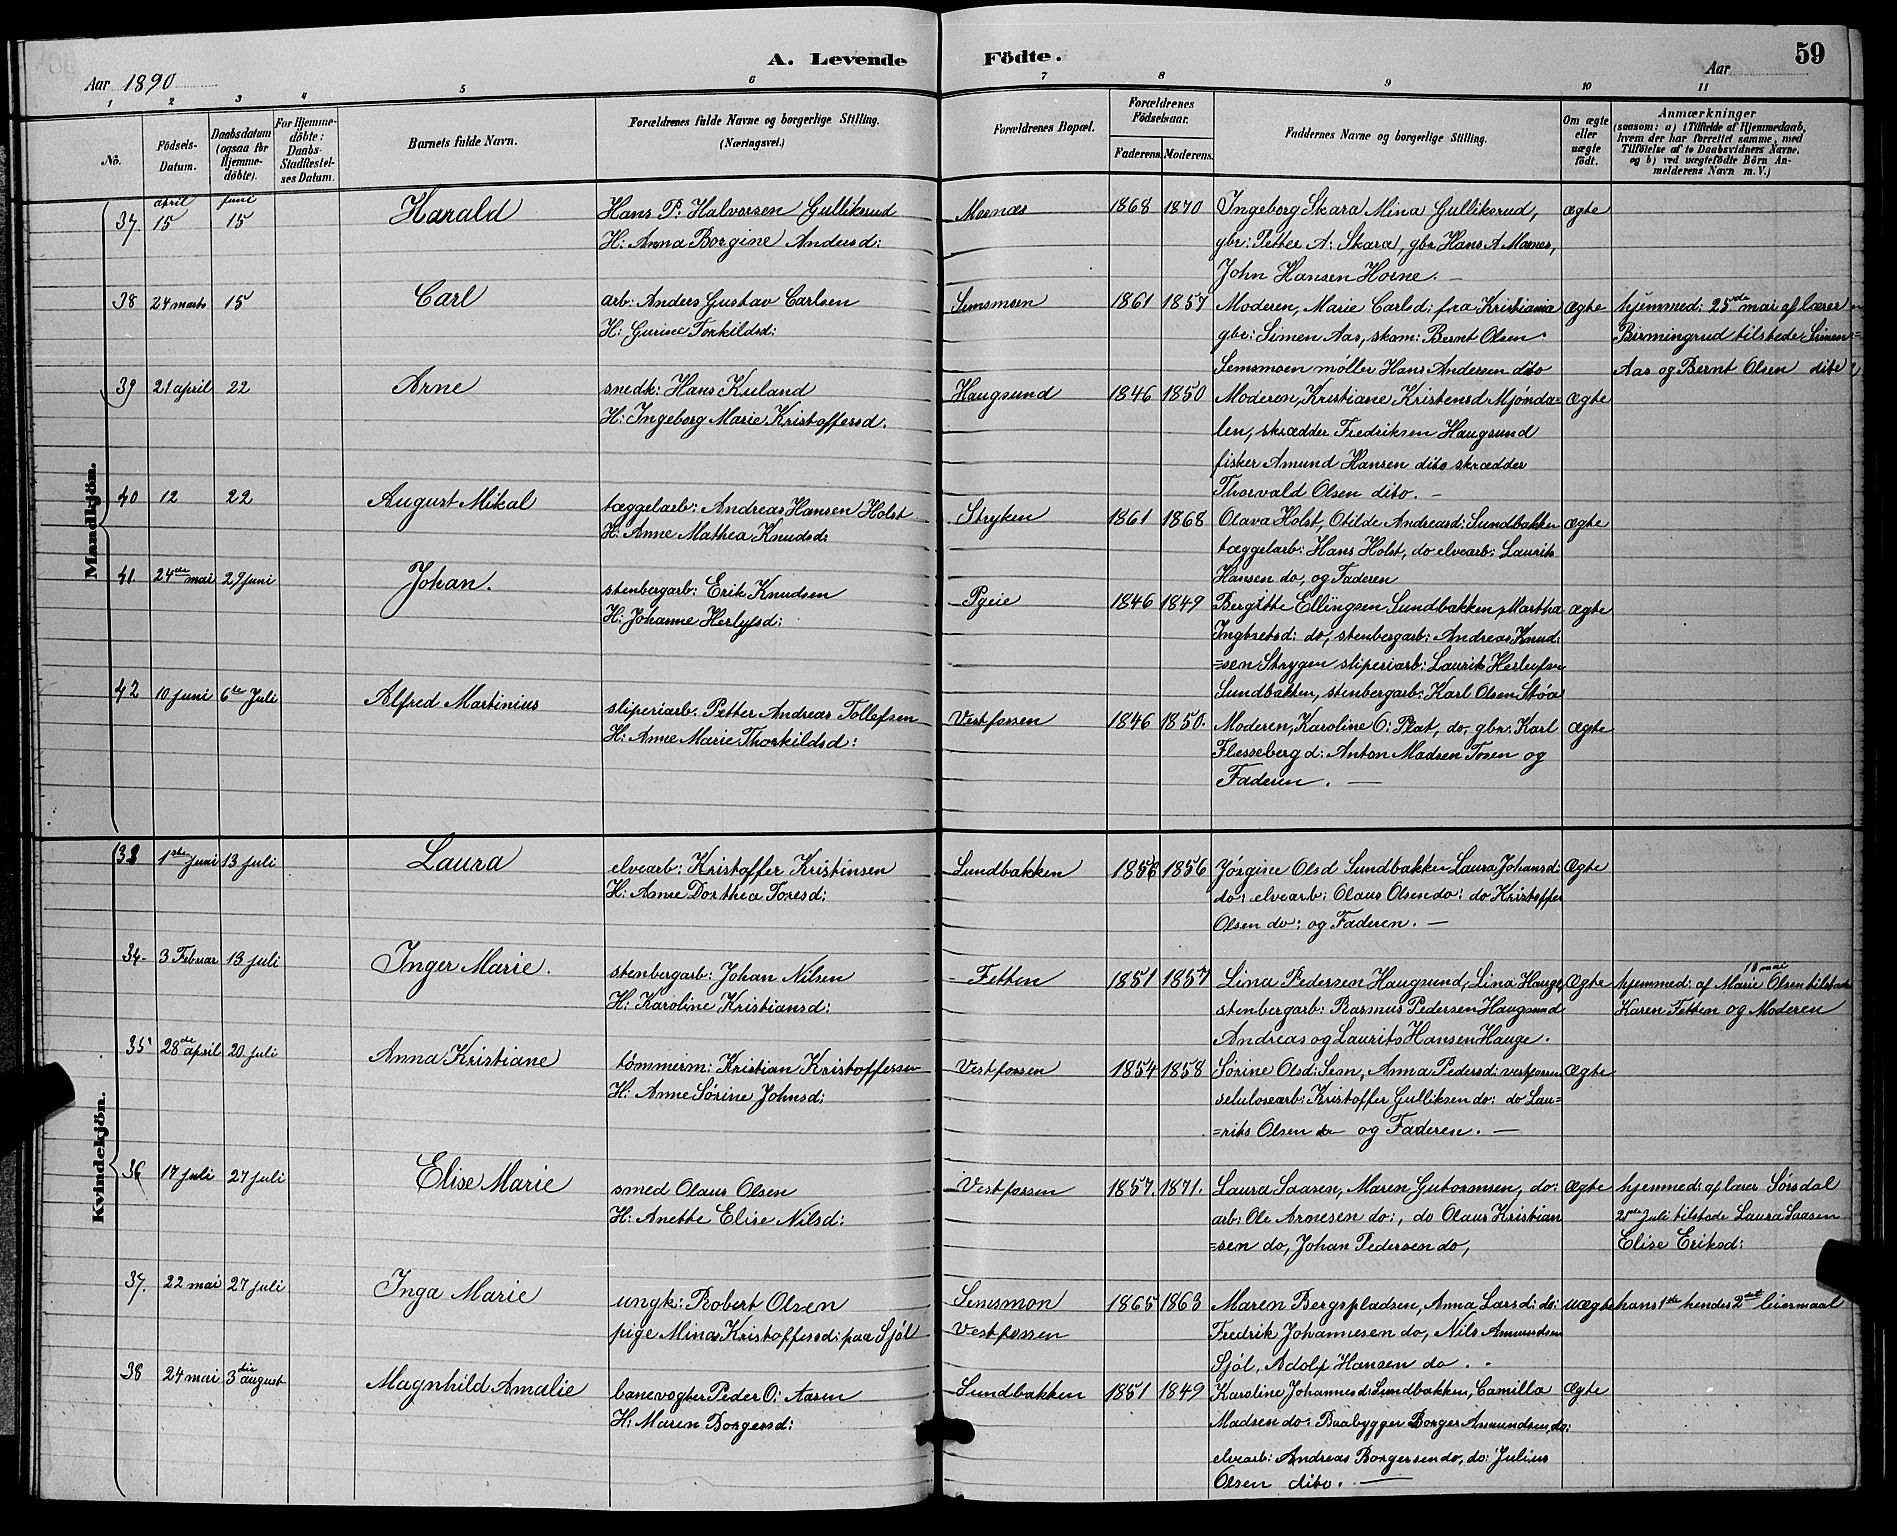 A. Levende Födte.
59
Aar 1890
Aar
1 2 3 4 5 6 7 8 9 10 11
No.
Födsels-Datum.
Daabsdatum (ogsaa for Hjemme-döbte).
For Hjemme-döbte: Daabs-Stadfestel-ses Datum.
Barnets fulde Navn.
Forældrenes fulde Navne og borgerlige Stilling. (Næringsvei.)
Forældrenes Bopæl.
Forældrenes Födselsaar.
Faderens. Moderens.
Faddernes Navne og borgerlige Stilling.
Om ægte eller uægte födt.
Anmærkninger (saasom: a) i Tilfælde af Hjemmedaab, hvem der har forrettet samme, med Tilföielse af to Daabsvidners Navne. og b) ved uægtefödte Börn An-melderens Navn m. V.)
Mandkjön.
april juni
37 15 15 Harald Hans P. Halvorsen Gulliksrud Mosnæs 1868 1870 Ingeborg Skara Mina Gulliksrud, ægte
H: Anna Borgine Andersd: gbr: Petter A: Skara, gbr Hans A Mosnæs,
John Hansen Horne. —
38 24 marts 15 Carl arb: Anders Gustav Carlsen Semsmoen 1861 1857 Moderen, Marie Carlsd: fra Kristiania ægte hjemmed: 25de mai af lærer
H: Gurine Torkildsd: gbr: Simen Aas, skom: Bernt Olsen Birmingrud tilstede Simen
Semsmoen møller Hans Andersen dito Aas og Bernt Olsen dito
39 21 april 22 Arne snedk: Hans Kuland Haugsund 1846 1850 Moderen, Kristiane Kristensd Mjønda- ægte
H: Ingeborg Marie Kristoffersd. len, skrædder Fredriksen Haugsund
fisker Amund Hansen dito skrædder
Thorvald Olsen dito. —
40 12 22 August Mikal tæggelarb: Andreas Hansen Holst Stryken 1861 1868 Olava Holst, Otilde Andreasd: Sundbakken ægte
H: Anne Mathea Knudsd: tæggelarb: Hans Holst, do elvearb: Laurits
Hansen do, og Faderen
41. 24de mai 29 juni Johan. stenbergarb: Erik Knudsen Pgeie 1846 1849 Bergitte Ellingsen Sundbakken, Martha ægte
H: Johanne Herlufsd: Ingbretsd: do, stenbergarb: Andreas Knud:
=sen Strygen sliperiarb: Laurits Herlufsen
Sundbakken, stenbergarb: Karl Olsen Støa
42 10 juni 6te Juli Alfred Martinius sliperiarb. Petter Andreas Tollefsen Vestfossen 1846 1850. Moderen, Karoline O: Plat, do, gbr: Karl ægte
H: Anne Marie Thorkildsd: Flesseberg d: Anton Madsen Tosen og
Faderen. —
Kvindekjön.
33 1ste juni 13 juli Laura elvearb: Kristoffer Kristinsen Sundbakken 1856 1856 Jørgine Olsd Sundbakken Laura Johansd: Ægte
H: Anne Dorthea Toresd: do: elvearb: Olaus Olsen do: do Kristoffer
Olsen do: og Faderen. —
34. 3 Februar 13 juli Inger Marie. stenbergarb: Johan Nilsen Fetten 1851 1857 Lina Pedersen Haugsund, Lina Hauge, Ægte hjemmed: af Marie Olsen tilstede
18 mai
H: Karoline Kristiansd: stenbergarb: Rasmus Pedersen Haugsund Karen Fetten og Moderen
Andreas og Laurits Hansen Hauge.
35 28de april 20 juli Anna Kristiane tömmerm: Kristian Kristoffersen Vestfossen 1854 1858 Sørine Olsd: Sem, Anna Pedersd: vestfossen Ægte
H: Anne Sørine Johnsd: selulosearb: Kristoffer Gulliksen do: do Lau=
=rits Olsen do og Faderen. —
36 17 juli 27 juli Elise Marie smed Olaus Olsen Vestfossen 1857. 1871. Laura Saasen, Maren Gutormsen, do: Ægte hjemmed: af lærer Sørsdal
H: Anette Elise Nilsd: arb: Ole Arnesen do:, do Olaus Kristian 21de juli tilstede Laura Saasen
=sen do, Johan Pedersen do, Elise Eriksd:
37. 22 mai 27 juli Inga Marie ungk: Robert Olsen Semsmon 1865 1863 Maren Bergspladsen, Anna Larsd: do: uægte hans 1ste hendes 2det leiermaal
pige Mina Kristoffersd: paa Sjøl Vestfossen Fredrik Johannesen do, Nils Amundsen
Sjøl, Adolf Hansen do.
38 24 mai 3die august Magnhild Amalie banevogter Peder O: Aaren Sundbakken 1851 1849 Karoline Johannesd: Sundbakken, Camilla Ægte
H: Maren Borgersd: Madsen do: Baabygger Borger Amundsen do:
elvearb: Andreas Borgersen do, do: Julius
Olsen dito. —